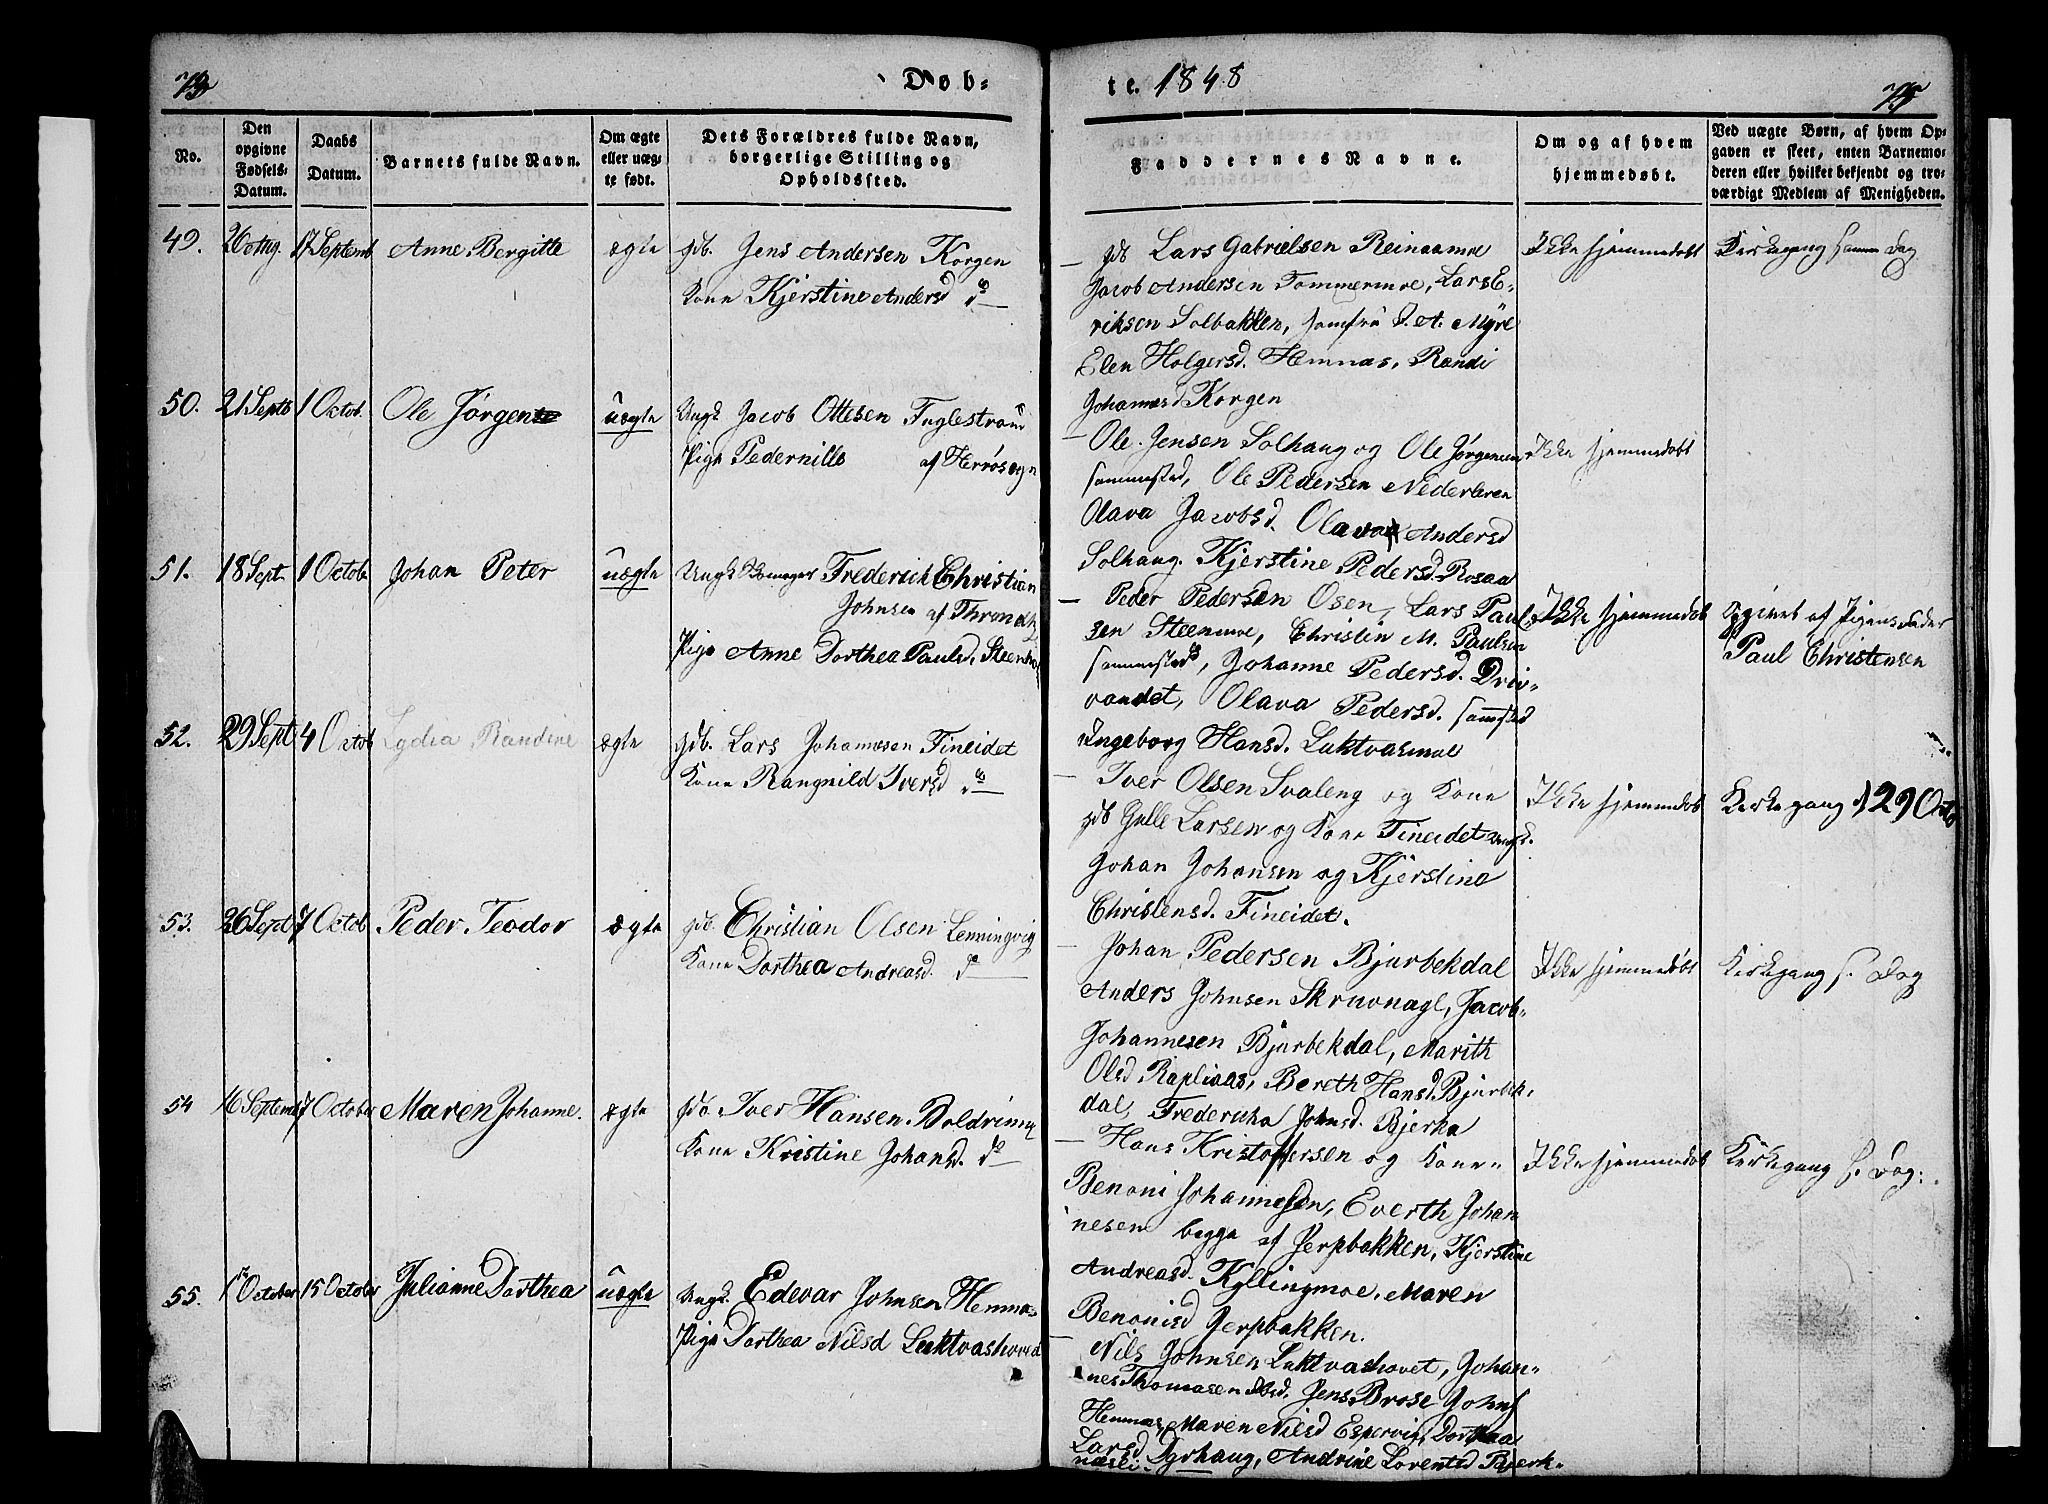 Døb-
te. 1848
No.
Den opgivne Fødsels-Datum.
Daabs Datum.
Barnets fulde Navn.
Om ægte eller uægte født.
Dets Forældres fulde Navn, borgerlige Stilling og Opholdssted.
Faddernes Navne.
Om og af hvem hjemmedøbt.
Ved uægte Børn, af hvem Opgaven er skeet, enten Barnemoderen eller hvilket bekjendt og troværdigt Medlem af Menigheden.
49. 26 Aug. 17 Septemb Anne Bergitte ægte
gdb. Jens Andersen Korgen
Kone Kjerstine Andersd do
gdb Lars Gabrielsen Reinaamoe
Jacob Andersen Tømmermoe, Lars E-
riksen Solbakken, Jomfru D. A. Myre
Elen Holgersd. Hemnæs, Randi
Johannesd Korgen
Ikke hjemmedøbt
Kirkegang samme Dag
50. 21 Septb 1 Octob. Ole Jørgen uægte
Ungk Jacob Ottesen Fuglestrøm
Pige Pedernille af Herrø Sogn
Ole Jensen Solhaug og Ole Jørgensen
sammested, Ole Pedersen Nederleren
Olava Jacobsd. Olava Andersd
Solhaug. Kjerstine Pedersd. Rosaa
Ikke hjemmedøbt
51. 18 Sept. 1 Octob. Johan Peter uægte
Ungk Frederich Christian
Johnsen af Throndhj
Pige Anne Dorthea Paulsd. Steenmo
Peder Pedersen Osen, Lars Paul-
sen Steenmoe, Christin M. Paulsen
sammesteds, Johanne Pedersd. Driv-
vandet, Olava Pedersd. sammsted
Ingeborg Hansd. Luktvasmoe
Ikke hjemmedøbt
Opgivet af Pigens Fader
Paul Christensen
52. 29 Sept 4 Octob Lydia Randine ægte
gdb. Lars Johannesen Fineidet
Kone Rangnild Iversd do
Iver Olsen Svaleng og Kone
gdb Gulle Larsen og Kone Fineidet ungk.
Johan Johansen og Kjerstine
Christensd. Fineidet.
Ikke hjemmedøbt
Kirkegang d 29 Octob
53. 26 Sept 7 Octob Peder Teodor ægte
gdb. Christian Olsen Lenningvig
Kone Dorthea Andreasd. do
Johan Pedersen Bjurbekdal
Anders Johnsen Skruvnagl, Jacob
Johannesen Bjurbekdal, Marith
Olsd Rapliaas, Bereth Hansd. Bjurbek-
dal, Fredericha Johnsd. Bjerka
Ikke hjemmedøbt
Kirkegang s. Dag
54 16 Septemb 7 October Maren Johanne. ægte
gdb. Iver Hansen Boldrimo
Kone Kristine Johansd. do
Hans Kristoffersen og Kone
Benoni Johannesen, Everth Johan
nesen begge af Jerpbakken, Kjerstine
Andreasd. Kyllingmoe, Maren
Benonisd Jerpbakken.
Ikke hjemmedøbt
Kirkegang s. Dag.
55. 1 October 15 October Julianne Dorthea uægte
Ungk. Edevar Johnsen Hemnæs
Pige Dorthea Nilsd Luktvashoved
Nils Johnsen Luktvashovet, Johan-
nes Thomasen Ibsd, Jens Brose Johns
Hemnæs, Maren Nilsd Espervig, Dorthea
Larsd Dyrhaug, Andrine Lorentsd Bjerk-
næsli.